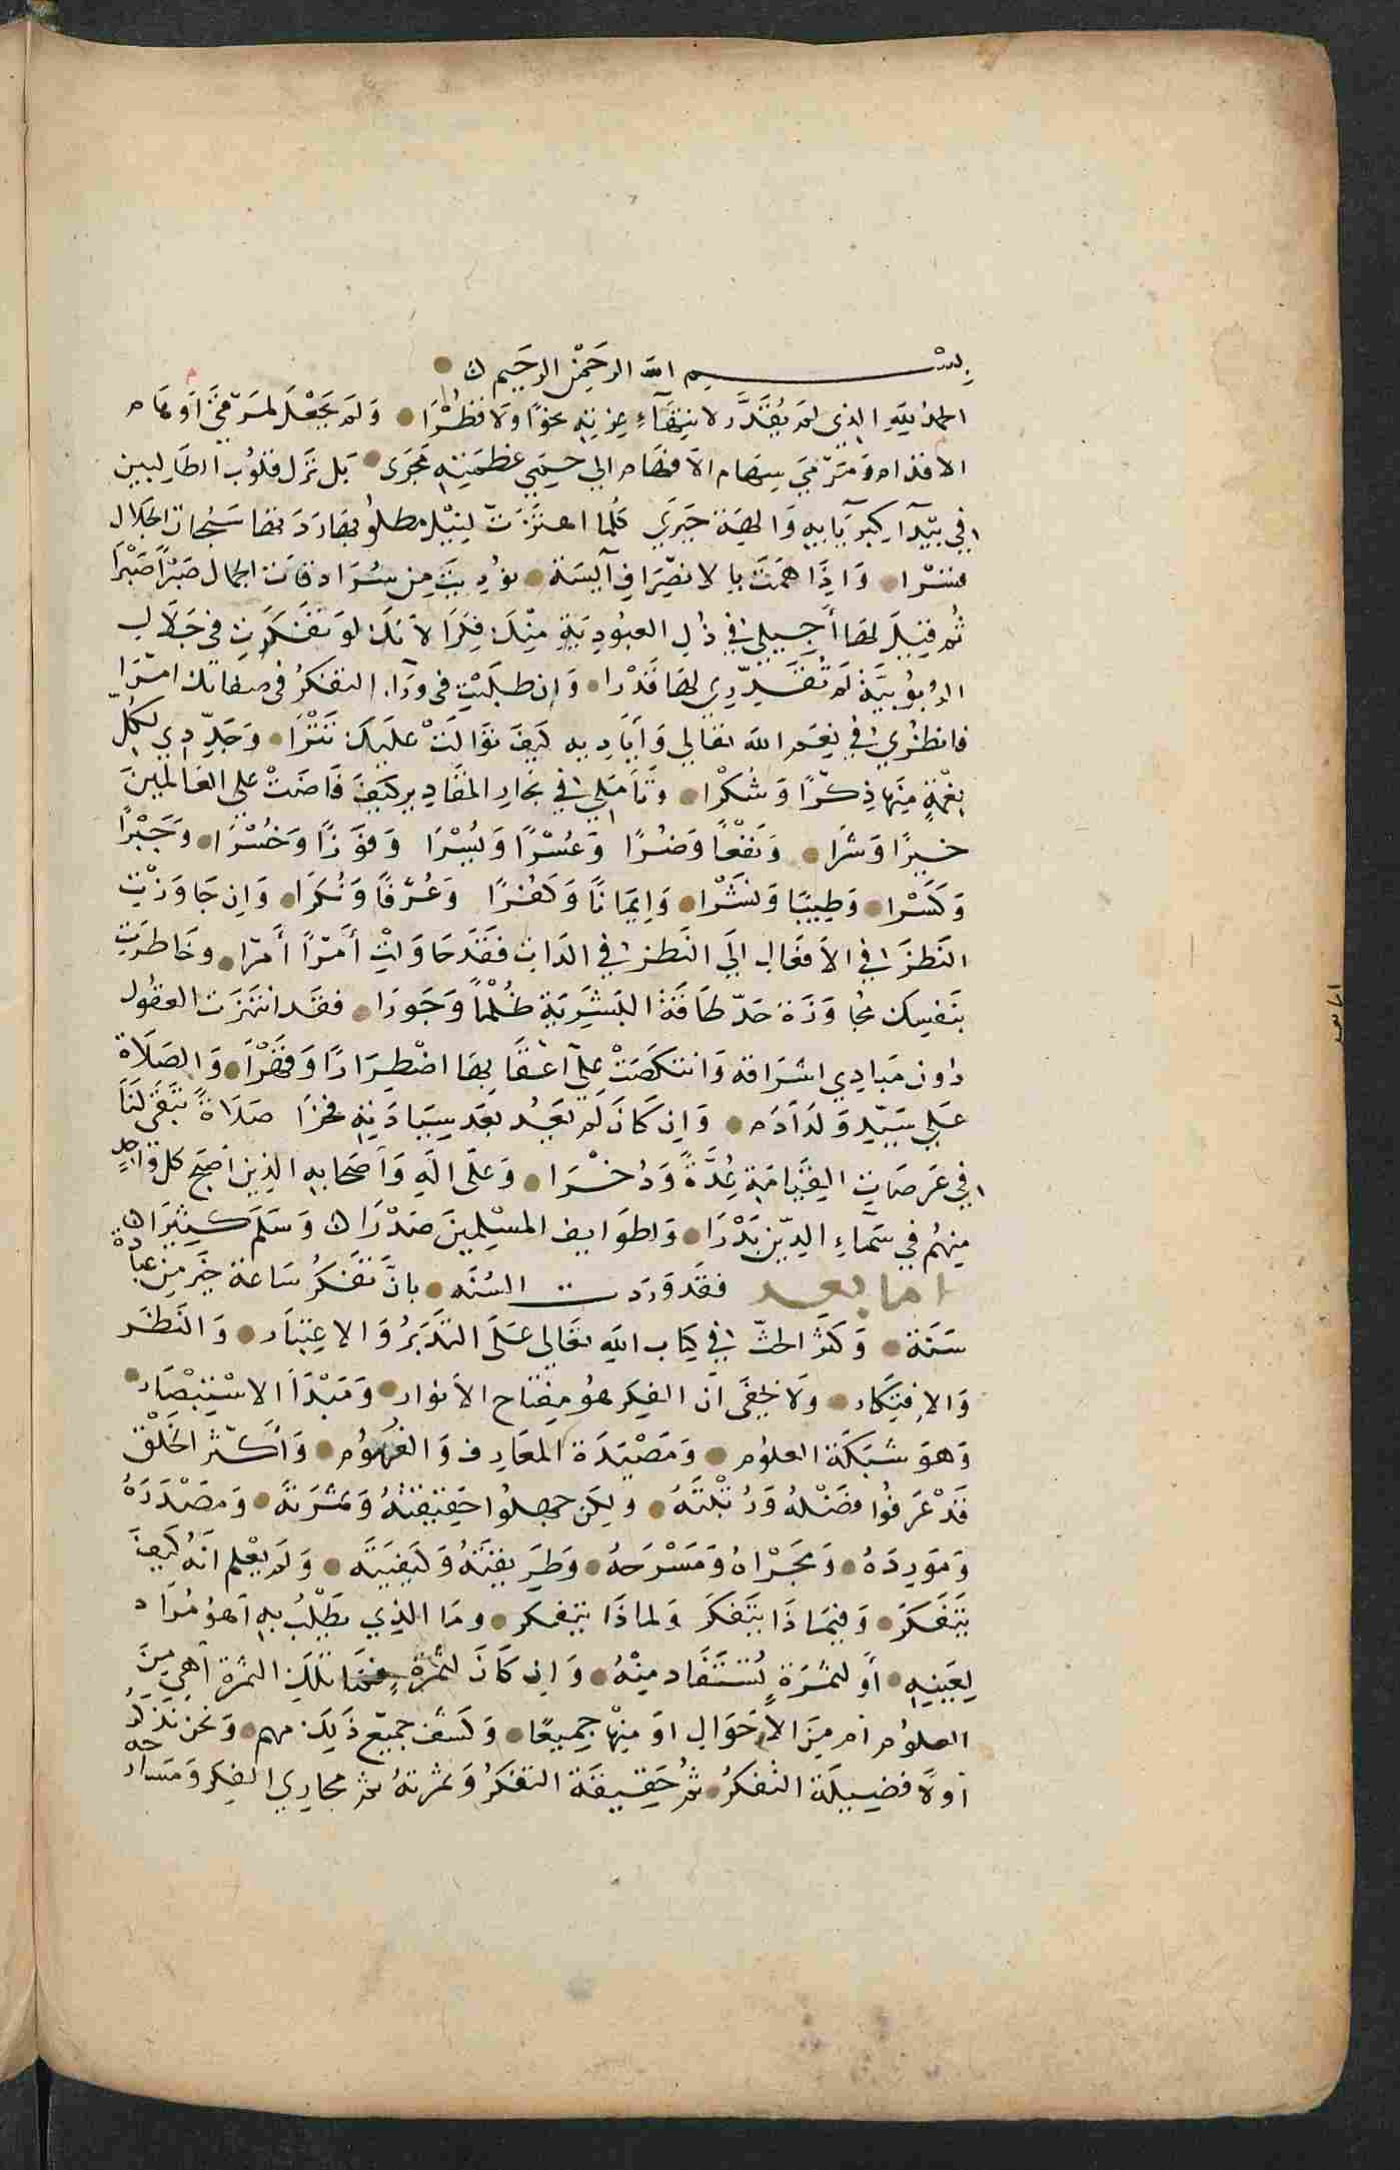 بسم الله الرحمن الرحيم
الحمد لله الذي لم يُقَدَّر لانتهاء عزته نحوًا ولا قطرا ولم يجعل لمرقى اوهام
الاقدام ومرمى سهام الافهام الى حمى عظمته مجرى بل ترك قلوب الطالبين
في بيدآ كبريآيه والهة حيرى كلما اهتزت لنيل مطلوبها ردتها سبحات الجلال
قسرا واذا همت بالانصراف آيسة نوديت من سرادقات الجمال صبرًا صبرا
ثم قيل لها أجيلي في ذل العبودية منك فكرا لانك لو تفكرت في جلال
الربوبية لم تُقدّري لها قدرا وإن طلبت في ورآء التفكر في صفاتك امرا
فانظري في نعم الله تعالى وأياديه كيف توالت عليك تترا وجددي لكل
نعمة منها ذكرًا وشكرا وتأملي في بحار المقادير كيف فاضت على العالمين
خيرًا وشرا ونفعًا وضرًا وعسرًا ويسرا وفوزًا وخسرا وجبرًا
وكسرا وطيًا ونشرا وايمانًا وكفرًا وعرفًا ونكرا وان جاوزت
النظر في الافعال الى النظر في الذات فقد حاولت أمرًا أمرا وخاطرت
بنفسك مجاوزة حد طاقة البشرية ظلمًا وجورا فقد انتهرت العقول
دون مبادي اشراقه وانتكصت على اعقابها اضطرارًا وقهرا والصلاة
على سيد ولد آدم وان كان لم يعد بعد سيادته فخرا صلاةً تبقى لنا
في عرصات القيامة عُدّةً وذخرا وعلى اله واصحابه الذين اصبح كل واحدٍ
منهم في سماء الدين بدرا ولطوايف المسلمين صدرا وسلم كثيرا
اما بعد فقد وردت السنه بان تفكر ساعة خير من عبادة
سنة وكثر الحث في كتاب الله تعالى على التدبر والاعتبار والنظر
والافتكار ولا يخفى أن الفكر هو مفتاح الأنوار ومبدأ الاستبصار
وهو شبكة العلوم ومصيدة المعارف والفهوم وأكثر الخلق
قد عرفوا فضله ورتبته ولكن جهلوا حقيقته وثمرته ومصدره
ومورده ومجراه ومسرحه وطريقته وكيفيته ولم يعلم انه كيف
يتفكر وفيماذا يتفكر ولماذا يتفكر وما الذي يطلب به أهو مراد
لعينه أو لثمرة تستفاد منه وان كان لثمرةٍ فما تلك الثمرة أهي من
العلوم أم من الأحوال او منها جميعًا وكشف جميع ذلك مهم ونحن نذكر
أولا فضيلة التفكر ثم حقيقة التفكر وثمرته ثم مجاري الفكر ومسارحه